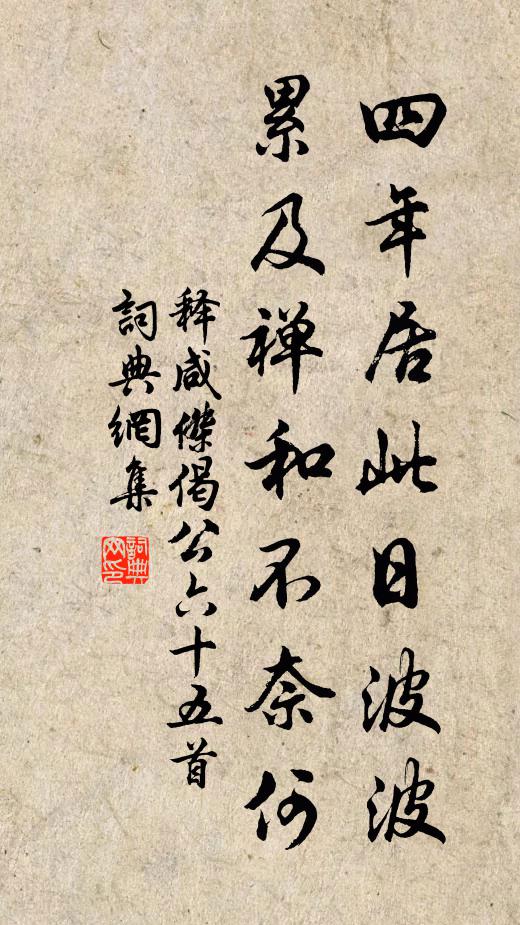 四年居此日波波
累及禅和不奈何
释咸傑偈公六十五首
詞典網集
詞典网印